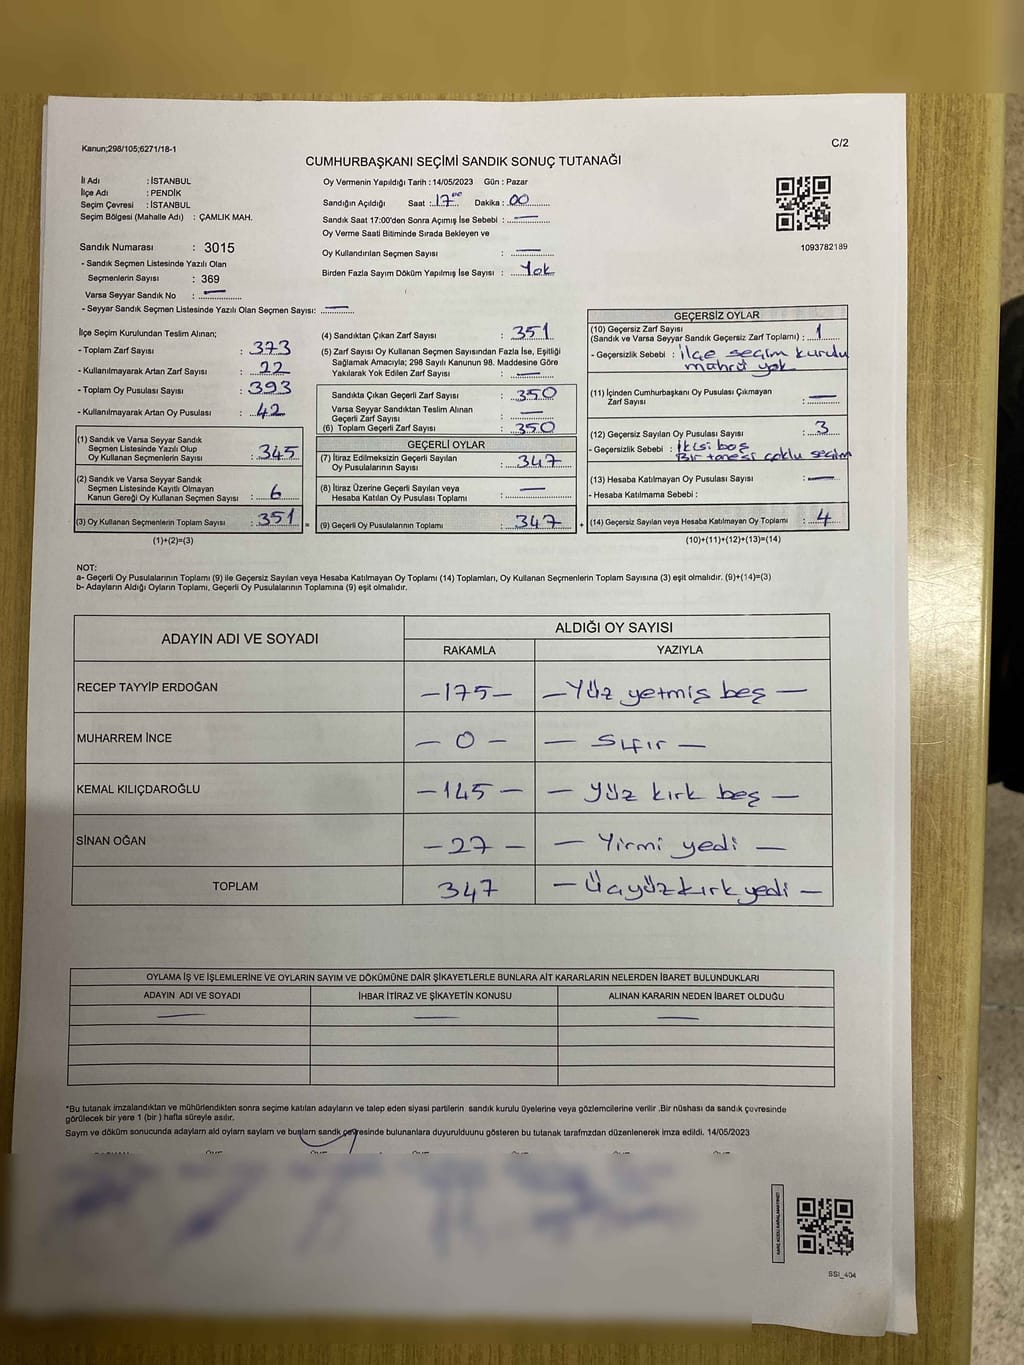 Kanun;298/105;6271/18-1
C/2
CUMHURBAŞKANI SEÇİMİ SANDIK SONUÇ TUTANAĞI
İl Adı : İSTANBUL
İlçe Adı : PENDİK
Seçim Çevresi : İSTANBUL
Seçim Bölgesi (Mahalle Adı) : ÇAMLIK MAH.
Sandık Numarası : 3015
- Sandık Seçmen Listesinde Yazılı Olan
Seçmenlerin Sayısı : 369
Varsa Seyyar Sandık No : —
- Seyyar Sandık Seçmen Listesinde Yazılı Olan Seçmen Sayısı: —
Oy Vermenin Yapıldığı Tarih : 14/05/2023 Gün : Pazar
Sandığın Açıldığı Saat : 17⁰⁰ Dakika : 00
Sandık Saat 17:00'den Sonra Açımış İse Sebebi : —
Oy Verme Saati Bitiminde Sırada Bekleyen ve
Oy Kullandırılan Seçmen Sayısı : —
Birden Fazla Sayım Döküm Yapılmış İse Sayısı : Yok
1093782189
İlçe Seçim Kurulundan Teslim Alınan;
- Toplam Zarf Sayısı : 373
- Kullanılmayarak Artan Zarf Sayısı : 22
- Toplam Oy Pusulası Sayısı : 393
- Kullanılmayarak Artan Oy Pusulası : 42
(1) Sandık ve Varsa Seyyar Sandık
Seçmen Listesinde Yazılı Olup
Oy Kullanan Seçmenlerin Sayısı : 345
(2) Sandık ve Varsa Seyyar Sandık
Seçmen Listesinde Kayıtlı Olmayan
Kanun Gereği Oy Kullanan Seçmen Sayısı : 6
(3) Oy Kullanan Seçmenlerin Toplam Sayısı : 351 =
(1)+(2)=(3)
(4) Sandıktan Çıkan Zarf Sayısı : 351
(5) Zarf Sayısı Oy Kullanan Seçmen Sayısından Fazla İse, Eşitliği
Sağlamak Amacıyla; 298 Sayılı Kanunun 98. Maddesine Göre
Yakılarak Yok Edilen Zarf Sayısı : —
Sandıkta Çıkan Geçerli Zarf Sayısı : 350
Varsa Seyyar Sandıktan Teslim Alınan
Geçerli Zarf Sayısı : —
(6) Toplam Geçerli Zarf Sayısı : 350
GEÇERLİ OYLAR
(7) İtiraz Edilmeksizin Geçerli Sayılan
Oy Pusulalarının Sayısı : 347
(8) İtiraz Üzerine Geçerli Sayılan veya
Hesaba Katılan Oy Pusulası Toplamı : —
(9) Geçerli Oy Pusulalarının Toplamı : 347 +
GEÇERSİZ OYLAR
(10) Geçersiz Zarf Sayısı
(Sandık ve Varsa Seyyar Sandık Geçersiz Zarf Toplamı) : 1
- Geçersizlik Sebebi : ilçe seçim kurulu
mührü yok
(11) İçinden Cumhurbaşkanı Oy Pusulası Çıkmayan
Zarf Sayısı : —
(12) Geçersiz Sayılan Oy Pusulası Sayısı : 3
- Geçersizlik Sebebi : İkisi boş
Bir tanesi çoklu seçim
(13) Hesaba Katılmayan Oy Pusulası Sayısı : —
- Hesaba Katılmama Sebebi :
(14) Geçersiz Sayılan veya Hesaba Katılmayan Oy Toplamı : 4
(10)+(11)+(12)+(13)=(14)
NOT:
a- Geçerli Oy Pusulalarının Toplamı (9) ile Geçersiz Sayılan veya Hesaba Katılmayan Oy Toplamı (14) Toplamları, Oy Kullanan Seçmenlerin Toplam Sayısına (3) eşit olmalıdır. (9)+(14)=(3)
b- Adayların Aldığı Oyların Toplamı, Geçerli Oy Pusulalarının Toplamına (9) eşit olmalıdır.
ADAYIN ADI VE SOYADI
ALDIĞI OY SAYISI
RAKAMLA YAZIYLA
RECEP TAYYİP ERDOĞAN —175— —Yüz yetmiş beş—
MUHARREM İNCE —0— —Sıfır—
KEMAL KILIÇDAROĞLU —145— —Yüz kırk beş—
SİNAN OĞAN —27— —Yirmi yedi—
TOPLAM 347 —Üçyüzkırkyedi—
OYLAMA İŞ VE İŞLEMLERİNE VE OYLARIN SAYIM VE DÖKÜMÜNE DAİR ŞİKAYETLERLE BUNLARA AİT KARARLARIN NELERDEN İBARET BULUNDUKLARI
ADAYIN ADI VE SOYADI İHBAR İTİRAZ VE ŞİKAYETİN KONUSU ALINAN KARARIN NEDEN İBARET OLDUĞU
— — —
*Bu tutanak imzalandıktan ve mühürlendikten sonra seçime katılan adayların ve talep eden siyasi partilerin sandık kurulu üyelerine veya gözlemcilerine verilir .Bir nüshası da sandık çevresinde
görülecek bir yere 1 (bir ) hafta süreyle asılır.
Sayım ve döküm sonucunda adayların aldı oyların sayıları ve bunların sandık çevresinde bulunanlara duyurulduunu gösteren bu tutanak tarafımzdan düzenlenerek imza edildi. 14/05/2023
SSI_404